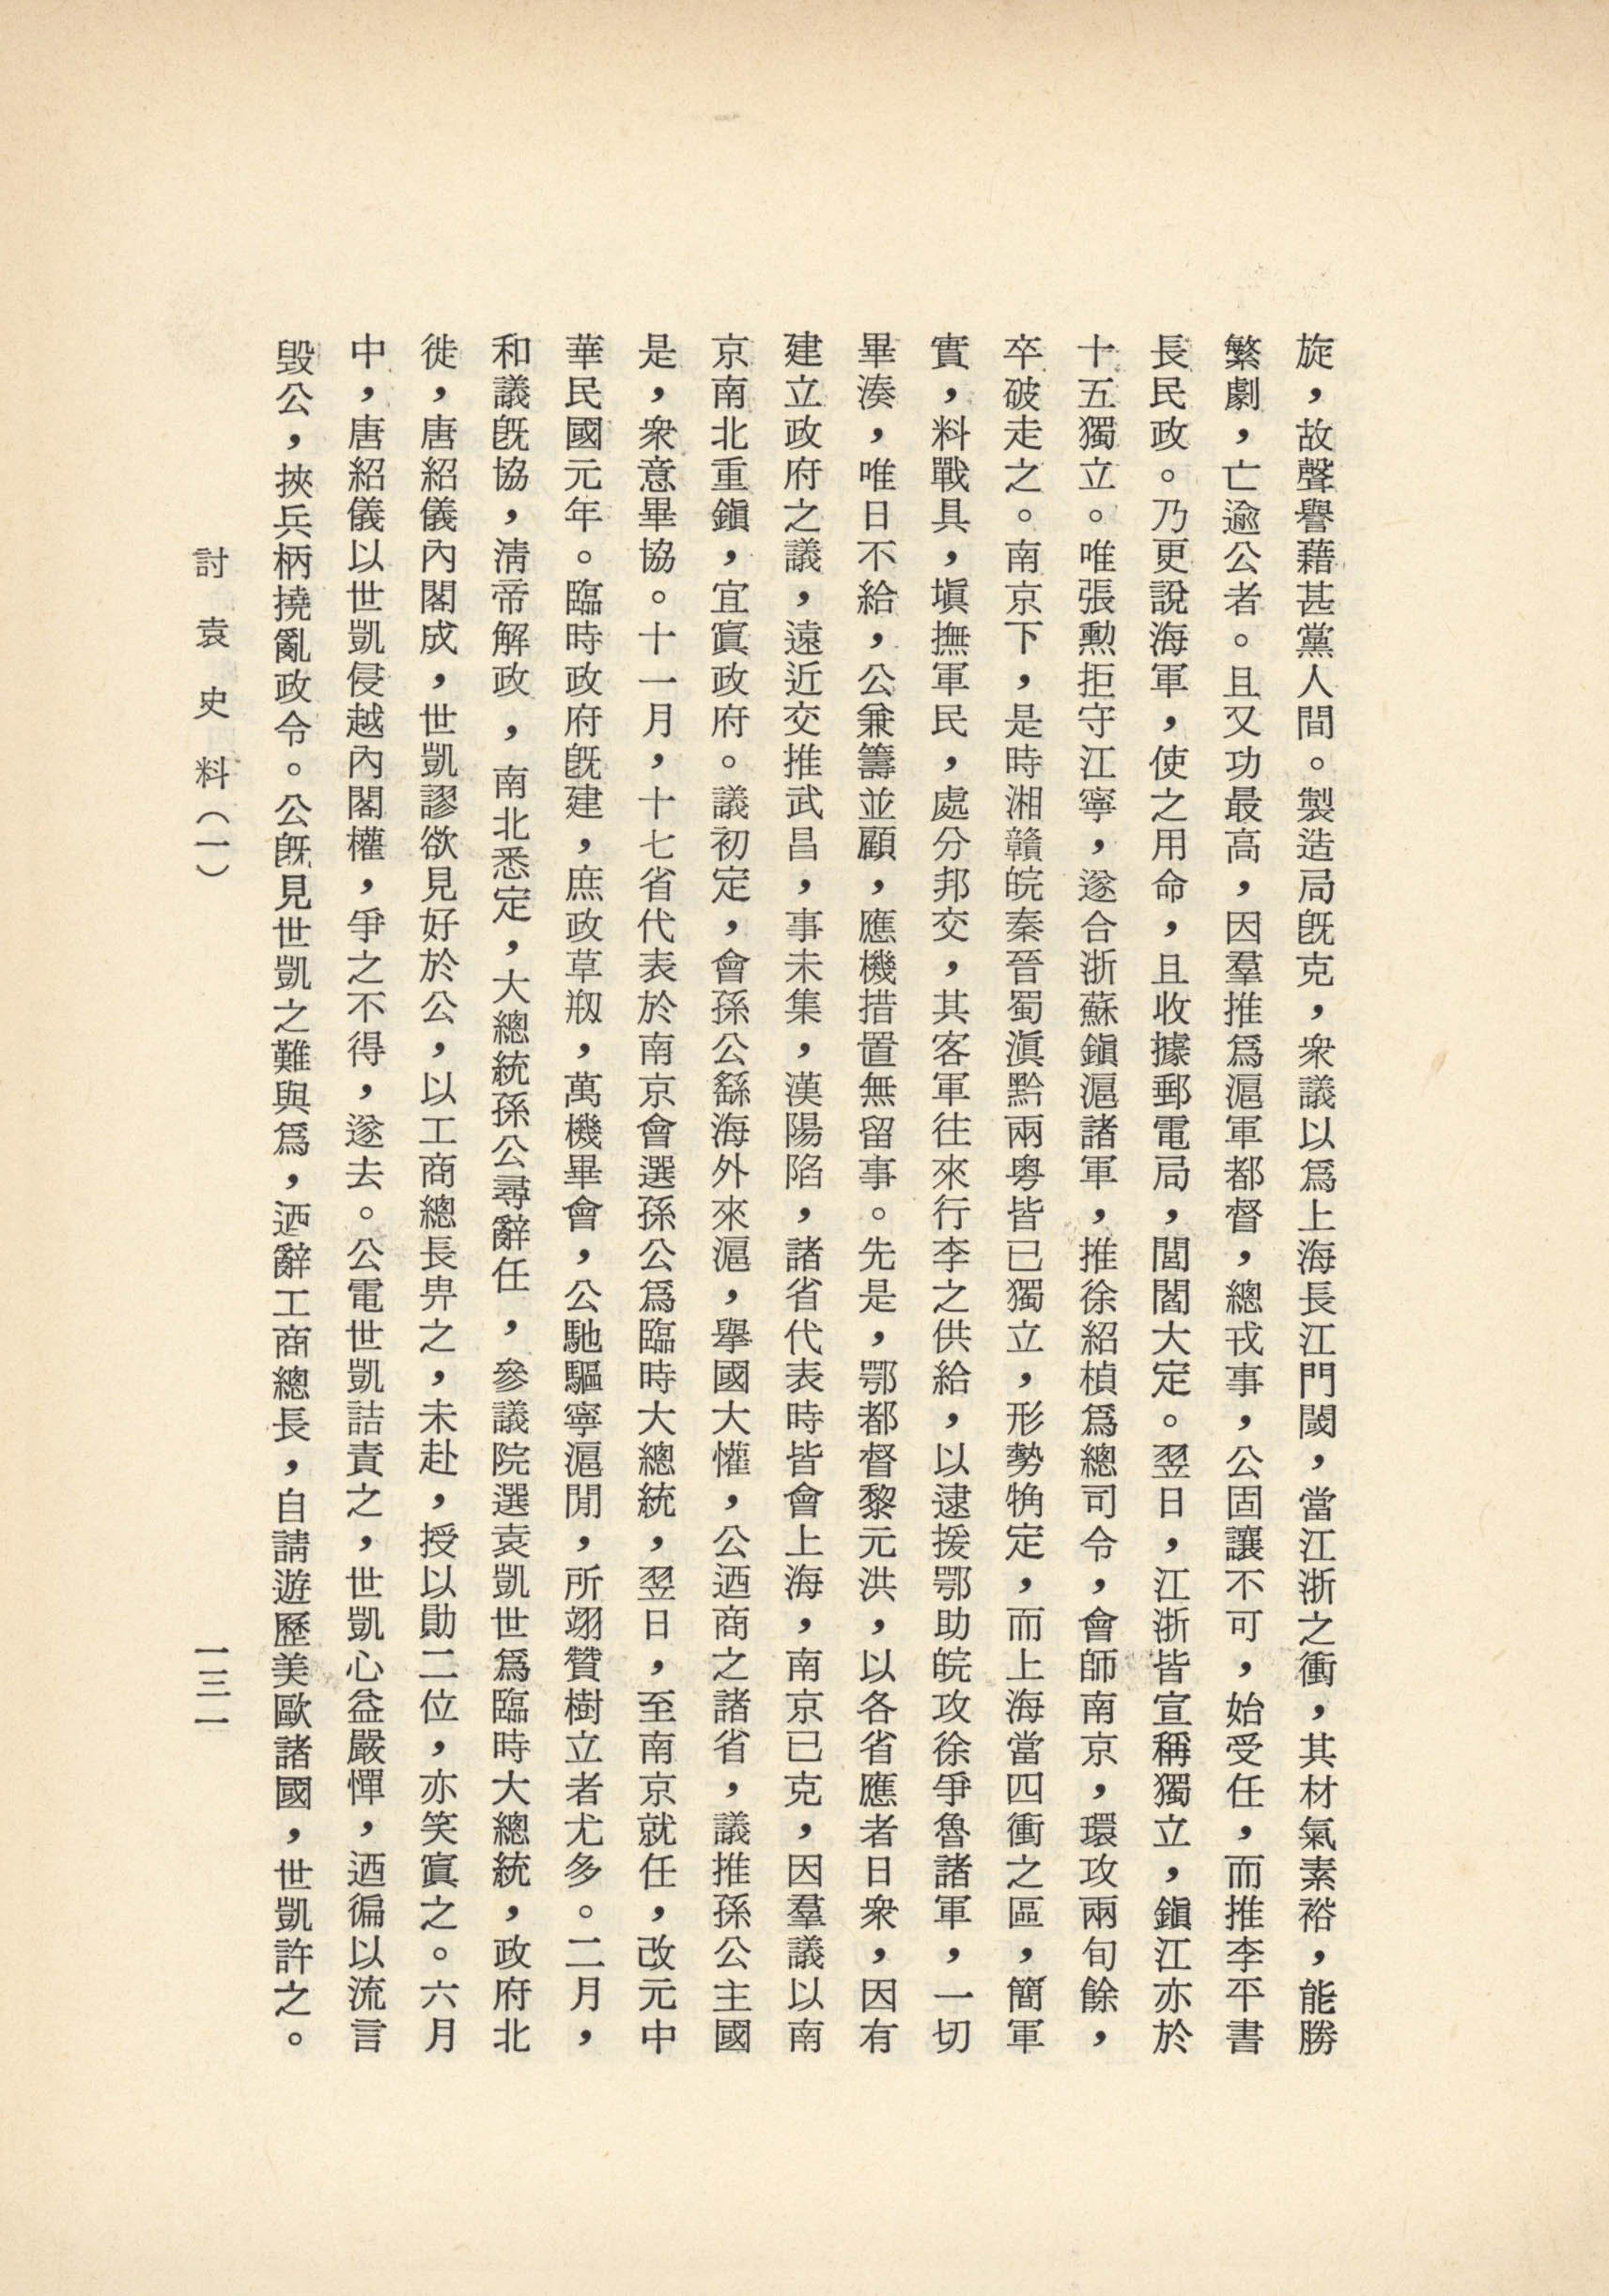 旋，故聲譽藉甚黨人間。製造局旣克，衆議以爲上海長江門閾，當江浙之衝，其材氣素裕，能勝
繁劇，亡逾公者。且又功最高，因羣推爲滬軍都督，總戎事，公固讓不可，始受任，而推李平書
長民政。乃更說海軍，使之用命，且收據郵電局，閭閻大定。翌日，江浙皆宣稱獨立，鎭江亦於
十五獨立。唯張勳拒守江寧，遂合浙蘇鎭滬諸軍，推徐紹楨爲總司令，會師南京，環攻兩旬餘，
卒破走之。南京下，是時湘贛皖秦晉蜀滇黔兩粵皆已獨立，形勢觕定，而上海當四衝之區，簡軍
實，料戰具，塡撫軍民，處分邦交，其客軍往來行李之供給，以逮援鄂助皖攻徐爭魯諸軍，一切
畢湊，唯日不給，公兼籌並顧，應機措置無留事。先是，鄂都督黎元洪，以各省應者日衆，因有
建立政府之議，遠近交推武昌，事未集，漢陽陷，諸省代表時皆會上海，南京已克，因羣議以南
京南北重鎭，宜寘政府。議初定，會孫公繇海外來滬，舉國大懽，公迺商之諸省，議推孫公主國
是，衆意畢協。十一月，十七省代表於南京會選孫公爲臨時大總統，翌日，至南京就任，改元中
華民國元年。臨時政府旣建，庶政草剏，萬機畢會，公馳驅寧滬閒，所翊贊樹立者尤多。二月，
和議旣協，淸帝解政，南北悉定，大總統孫公尋辭任，參議院選袁凱世爲臨時大總統，政府北
徙，唐紹儀內閣成，世凱謬欲見好於公，以工商總長畀之，未赴，授以勛二位，亦笑寘之。六月
中，唐紹儀以世凱侵越內閣權，爭之不得，遂去。公電世凱詰責之，世凱心益嚴憚，迺徧以流言
毀公，挾兵柄撓亂政令。公旣見世凱之難與爲，迺辭工商總長，自請遊歷美歐諸國，世凱許之。
討袁史料（一）
一三一